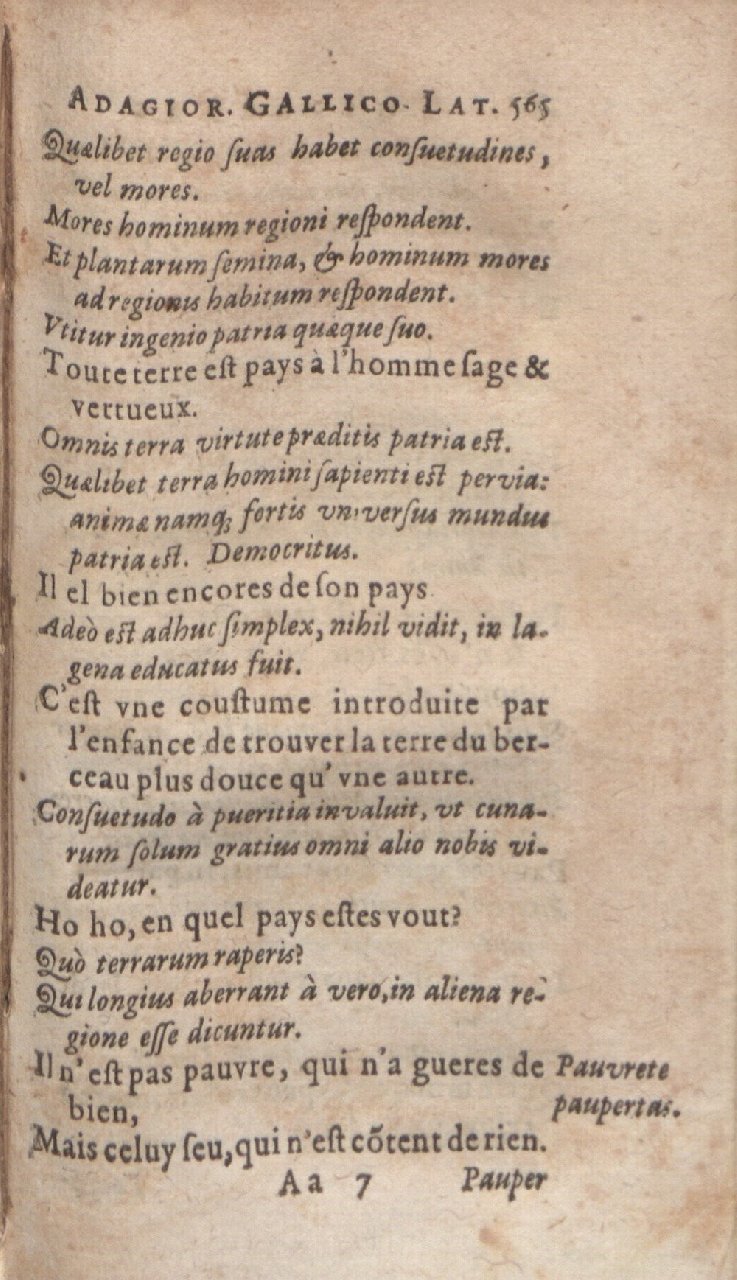 ADAGIOR. GALLICO-LAT. 565
Quælibet regio ſuas habet conſuetudines,
vel mores.
Mores hominum regioni reſpondent.
Et plantarum ſemina, & hominum mores
ad regionis habitum reſpondent.
Vtitur ingenio patria quæque ſuo.
Toute terre eſt pays à l'homme ſage &
vertueux.
Omnis terra virtute præditis patria eſt.
Quælibet terra homini ſapienti eſt pervia:
animæ namq; fortis vniverſus mundus
patria eſt. Democritus.
Il el bien encores de ſon pays
Adeò eſt adhuc ſimplex, nihil vidit, in la-
gena educatus fuit.
C'eſt vne couſtume introduite par
l'enfance de trouver la terre du ber-
ceau plus douce qu'vne autre.
Conſuetudo à pueritia invaluit, vt cuna-
rum ſolum gratius omni alio nobis vi-
deatur.
Ho ho, en quel pays eſtes vout?
Quò terrarum raperis?
Qui longius aberrant à vero, in aliena re-
gione eſſe dicuntur.
Il n'eſt pas pauvre, qui n'a gueres de
bien,
Pauvrete
paupertas.
Mais celuy ſeu, qui n'eſt cõtent de rien.
Aa 7 Pauper